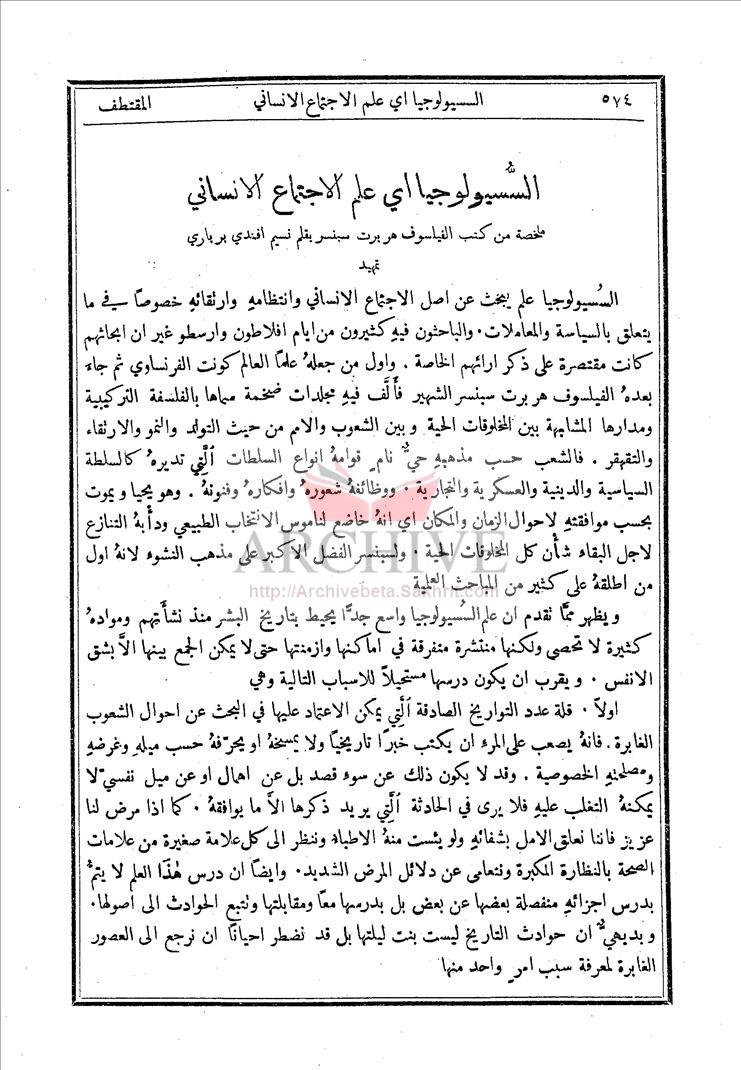 ٥٧٤ السسيولوجيا اي علم الاجتماع الانساني المقتطف
السُّسيولوجيا اي علم الاجتماع الانساني
ملخصة من كتب الفيلسوف هربرت سبنسر بقلم نسيم افندي برباري
تمهيد
السُسيولوجيا علم يبحث عن اصل الاجتماع الانساني وانتظامهِ وارتقائهِ خصوصاً في ما
يتعلق بالسياسة والمعاملات. والباحثون فيهِ كثيرون من ايام افلاطون وارسطو غير ان ابحاثهم
كانت مقتصرة على ذكر ارائهم الخاصة . واول من جعلهُ علماً العالم كونت الفرنساوي ثم جاءَ
بعدهُ الفيلسوف هربرت سبنسر الشهير فأَلَّف فيهِ مجلدات ضخمة سماها بالفلسفة التركيبية
ومدارها المشابهة بين المخلوقات الحية وبين الشعوب والامم من حيث التولد والنمو والارتقاء
والتقهقر . فالشعب حسب مذهبهِ حيٌّ نامٍ قوامهُ انواع السلطات الَّتي تديرهُ كالسلطة
السياسية والدينية والعسكرية والتجارية . ووظائفهُ شعورهُ وافكارهُ وفنونهُ . وهو يحيا ويموت
بحسب موافقتهِ لاحوال الزمان والمكان اي انهُ خاضع لناموس الانتخاب الطبيعي ودأبهُ التنازع
لاجل البقاء شأن كل المخلوقات الحية . ولسبنسر الفضل الاكبر على مذهب النشوء لانهُ اول
ARCHIVE
http://Archivebeta.Sakhrit.com
من اطلقهُ على كثير من المباحث العلمية
ويظهر ممَّا تقدم ان علم السُسيولوجيا واسع جدًّا يحيط بتاريخ البشر منذ نشأَتهم وموادهُ
كثيرة لا تحصى ولكنها منتشرة متفرقة في اماكنها وازمنتها حتى لا يمكن الجمع بينها الاَّ بشق
الانفس . ويقرب ان يكون درسها مستحيلاً للاسباب التالية وهي
اولاً . قلة عدد التواريخ الصادقة الَّتي يمكن الاعتماد عليها في البحث عن احوال الشعوب
الغابرة . فانهُ يصعب على المرءِ ان يكتب خبرًا تاريخيًّا ولا يمسخهُ او يحرّفهُ حسب ميلهِ وغرضهِ
ومصلحتهِ الخصوصية . وقد لا يكون ذلك عن سوء قصد بل عن اهمال او عن ميل نفسيٍّ لا
يمكنهُ التغلب عليهِ فلا يرى في الحادثة الَّتي يريد ذكرها الاَّ ما يوافقهُ . كما اذا مرض لنا
عزيز فاننا نعلق الامل بشفائهِ ولو يئست منهُ الاطباء وننظر الى كل علامة صغيرة من علامات
الصحة بالنظارة المكبرة ونتعامى عن دلائل المرض الشديد . وايضاً ان درس هٰذا العلم لا يتمُّ
بدرس اجزائهِ منفصلة بعضها عن بعض بل بدرسها معًا ومقابلتها وتتبع الحوادث الى اصولها.
وبديهيٌّ ان حوادث التاريخ ليست بنت ليلتها بل قد نضطر احيانًا ان نرجع الى العصور
الغابرة لمعرفة سبب امرٍ واحد منها